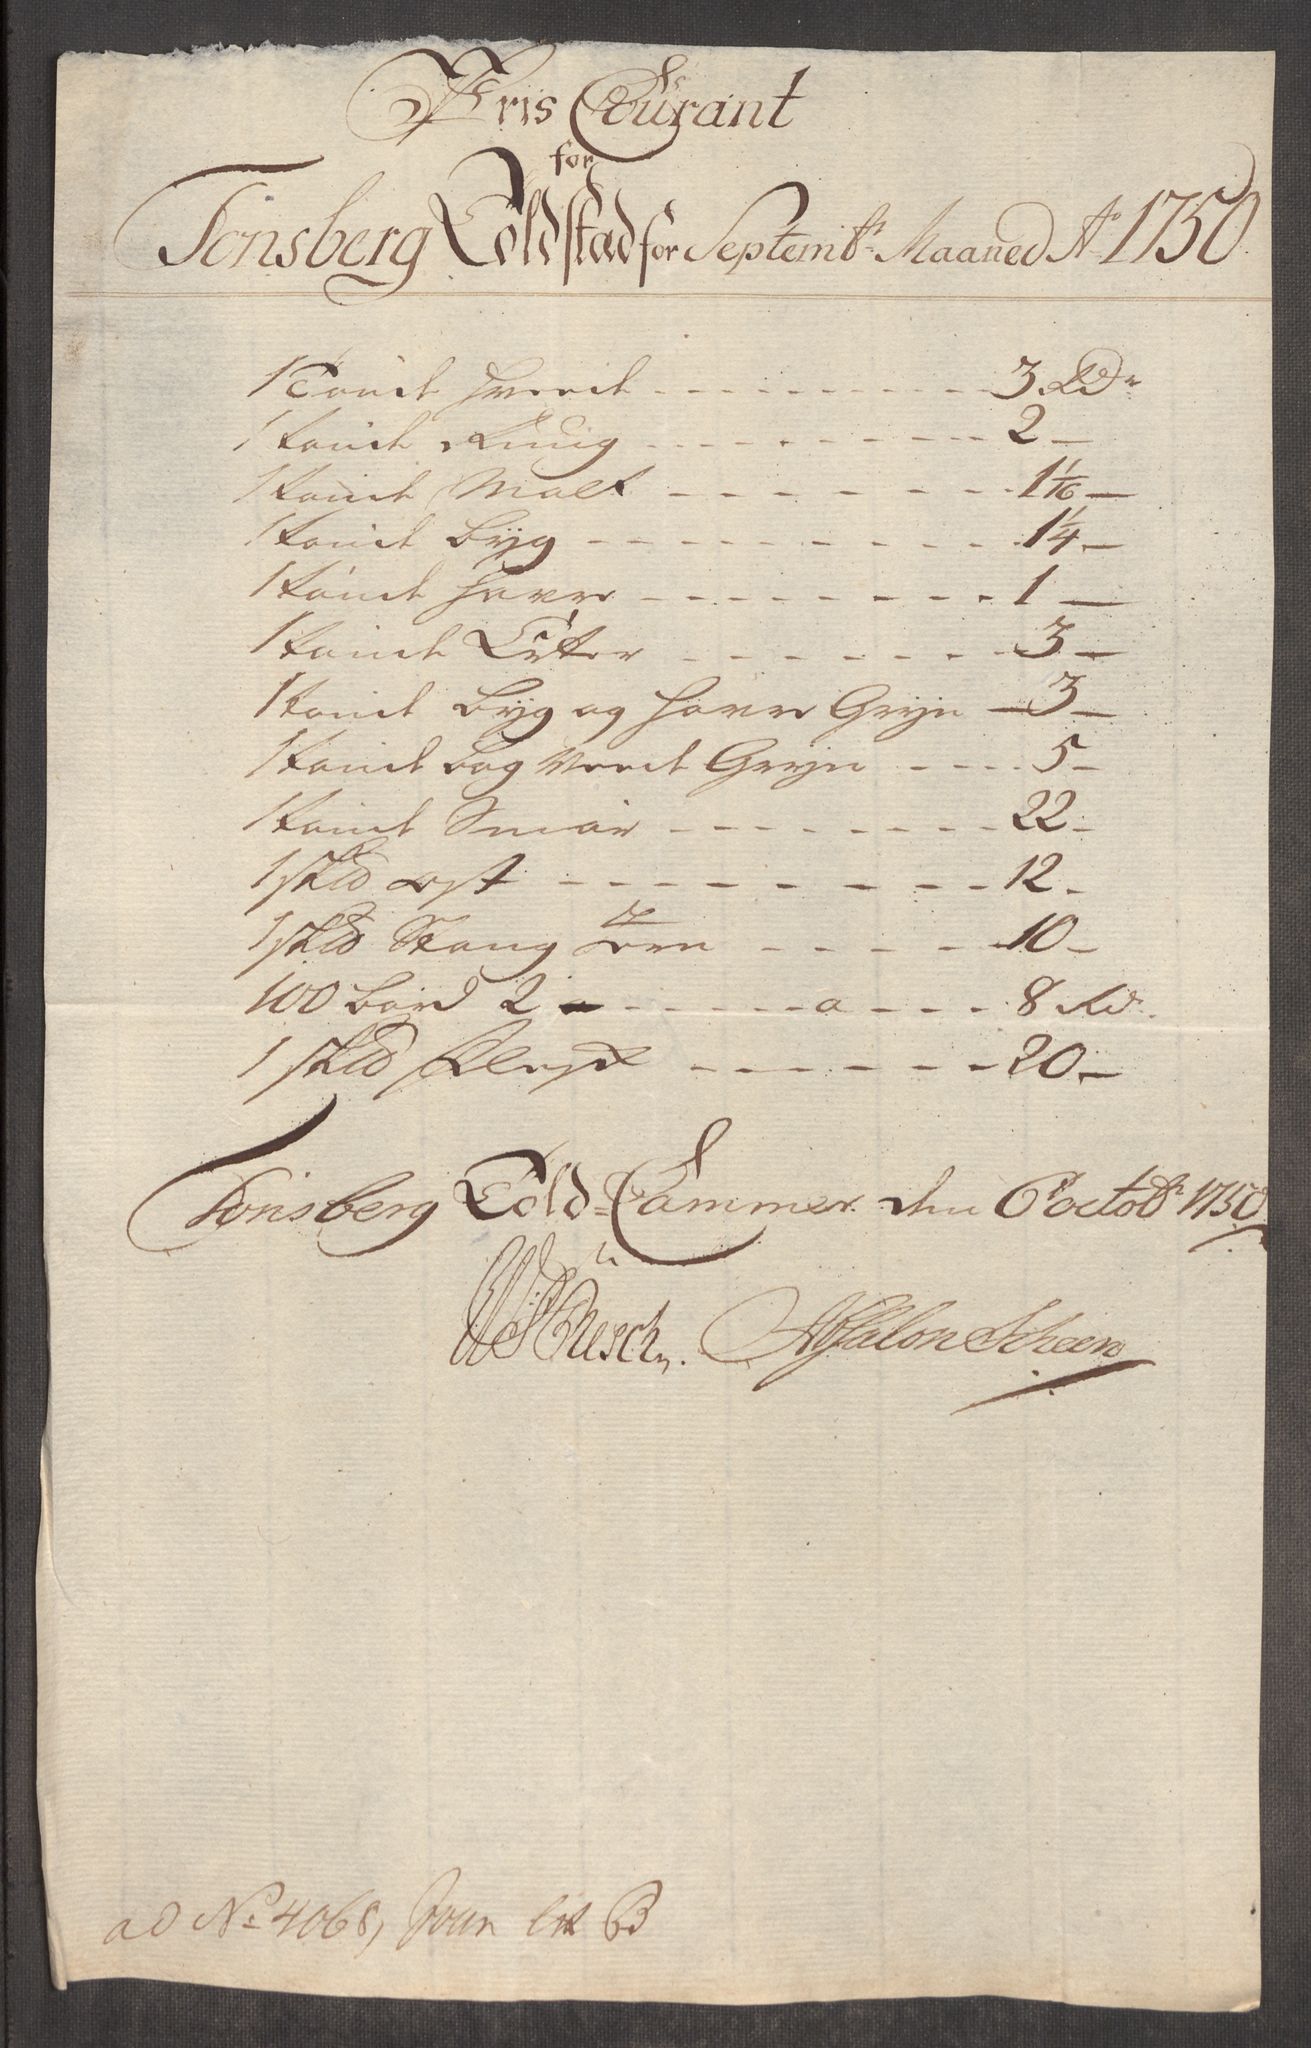 Pris Courant
for
Tonsberg Toldstad for Septembr. Maaned Ao 1750.
1 Tønde Hvede - - - 3 Rdr
1 tønde Rug - - - 2 -
1 tønde Malt - - - 1 1/16 -
1 tønde byg - - - 1 1/4 -
1 tønde Havre - - - 1 -
1 tønde Erter - - - 3 -
1 tønde byg og Havre Gryn - 3 -
1 tønde bog Hvede Gryn - - - 5 -
1 tønde Smør - - - 22 -
1 sk℔ ost - - - 12 -
1 sk℔ Stang Jern - - - 10 -
100 bord 2 - - - a - - - 8 Rd.
1 sk℔ - - - 20 -
Tonsberg Told-Cammer den 6 octobr 1750
Absalon Scheen
ad No 4068, Jour lit B